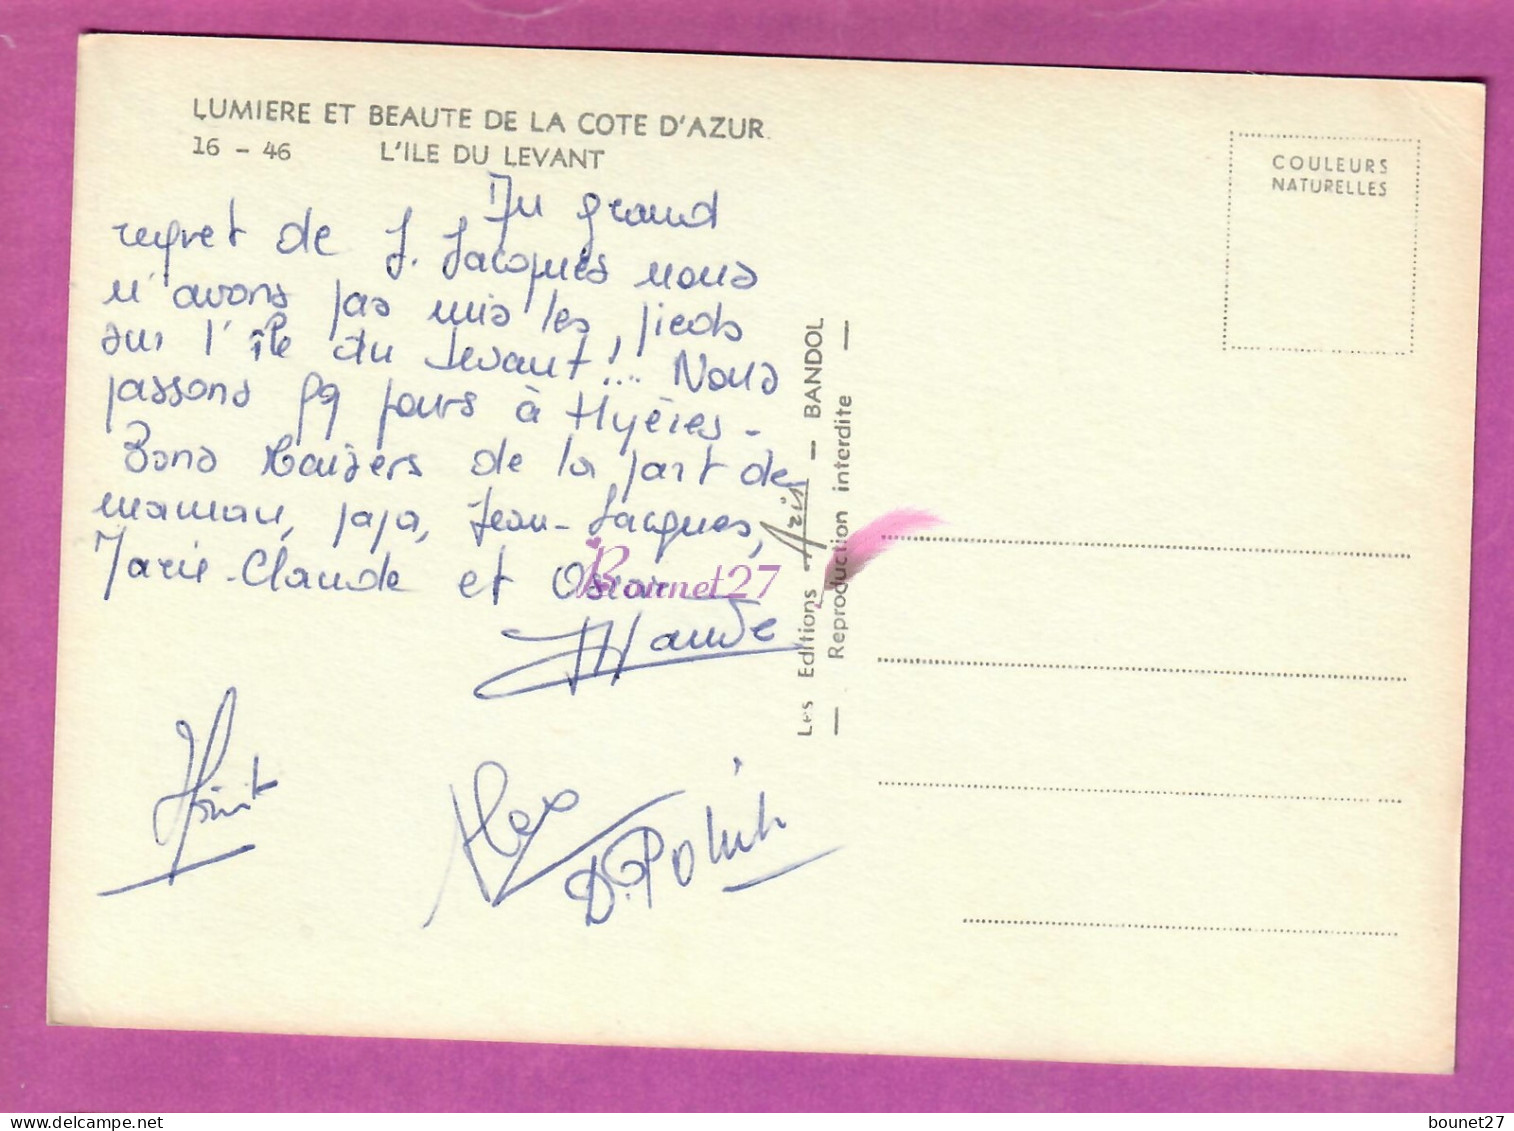 LUMIERE ET BEAUTE DE LA COTE D'AZUR
16 - 46 L'ILE DU LEVANT
COULEURS
NATURELLES
Au grand
regret de J. Jacques nous
n'avons pas mis les pieds
sur l'île du Levant !... Nous
passons jours à Hyères -
Bons baisers de la part de
maman, papa, Jean-Jacques,
Marie-Claude et Oscar
Maude
Alex
D. Polvik
Les Editions Aris — BANDOL
— Reproduction interdite —
Bounet27
bounet27